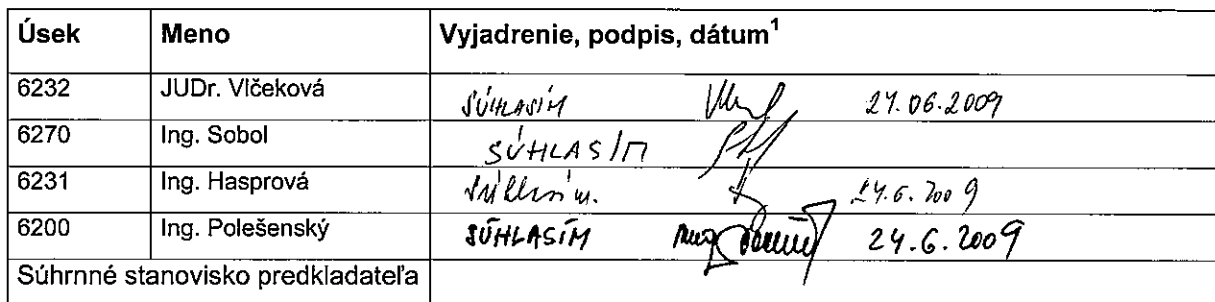 Úsek Meno Vyjadrenie, podpis, dátum1
6232 JUDr. Vlčeková SÚHLASÍM 24.06.2009
6270 Ing. Sobol SÚHLASÍM
6231 Ing. Hasprová Súhlasím. 24.6.2009
6200 Ing. Polešenský SÚHLASÍM 24.6.2009
Súhrnné stanovisko predkladateľa